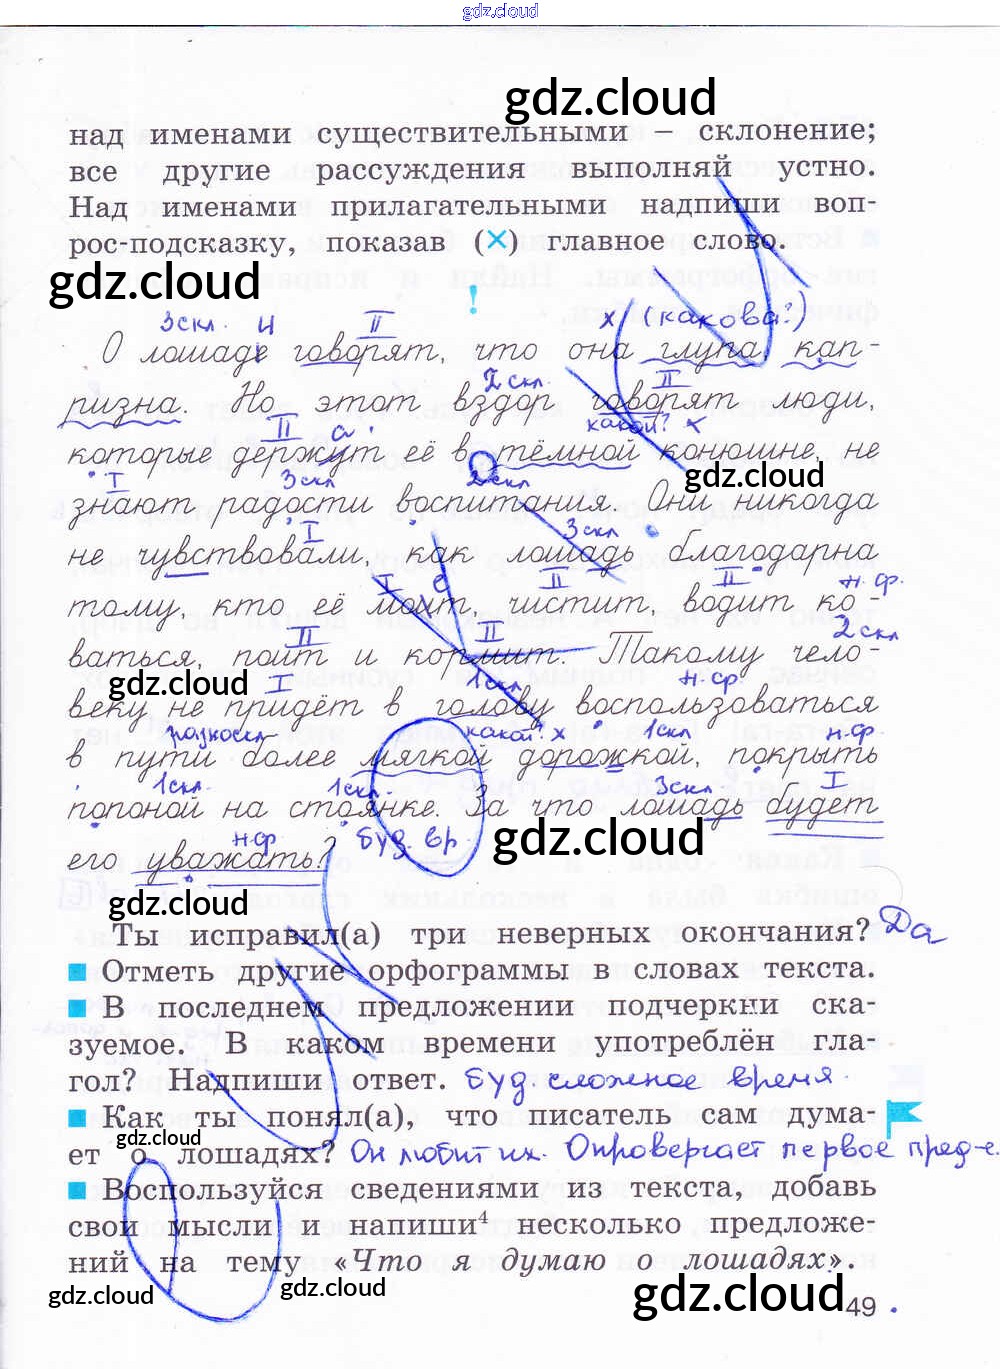 gdz.cloud
gdz.cloud
над именами существительными – склонение;
все другие рассуждения выполняй устно.
Над именами прилагательными надпиши воп-
рос-подсказку, показав (×) главное слово.
gdz.cloud
!
3скл. и II х (какова?)
О лошаде говорят, что она глупа, кап-
2скл II
ризна. Но этот вздор говорят люди,
II а какой? х
которые держут её в тёмной конюшне, не
gdz.cloud
I 3скл 2скл
знают радости воспитания. Они никогда
I 3скл
не чувствовали, как лошадь благодарна
I е II II н.ф.
тому, кто её моит, чистит, водит ко-
II II 2скл
ваться, поит и кормит. Такому чело-
gdz.cloud
I 1скл н.ф.
веку не придёт в голову воспользоваться
разноскл какой? х 1скл н.ф
в пути более мягкой дорожкой, покрыть
1скл. 1скл. 3скл I
попоной на стоянке. За что лошадь будет
н.ф буд. вр.
его уважать?
gdz.cloud
gdz.cloud
Ты исправил(а) три неверных окончания? Да
Отметь другие орфограммы в словах текста.
В последнем предложении подчеркни ска-
зуемое. В каком времени употреблён гла-
гол? Надпиши ответ. буд сложное время.
Как ты понял(а), что писатель сам дума-
gdz.cloud
ет о лошадях? Он любит их. Опровергает первое пред-е.
Воспользуйся сведениями из текста, добавь
свои мысли и напиши⁴ несколько предложе-
ний на тему «Что я думаю о лошадях».
gdz.cloud
gdz.cloud
gdz.cloud
49